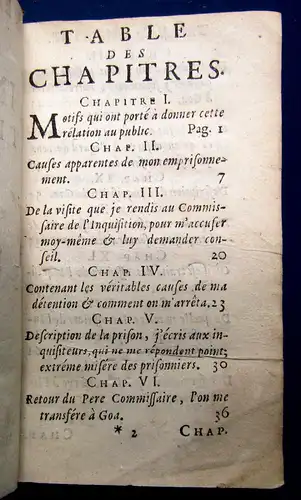 TABLE
DES
CHAPITRES.
CHAPITRE I.
Motifs qui ont porté à donner cette
rélation au public. Pag. 1
CHAP. II.
Causes apparentes de mon emprisonne-
ment. 7
CHAP. III.
De la visite que je rendis au Commis-
saire de l'Inquisition, pour m'accuser
moy-même & luy demander con-
seil. 20
CHAP. IV.
Contenant les véritables causes de ma
détention & comment on m'arrêta. 23
CHAP. V.
Description de la prison, j'écris aux in-
quisiteurs, qui ne me répondent point;
extrême misére des prisonniers. 30
CHAP. VI.
Retour du Pere Commissaire, l'on me
transfére à Goa. 36
* 2 CHAP.